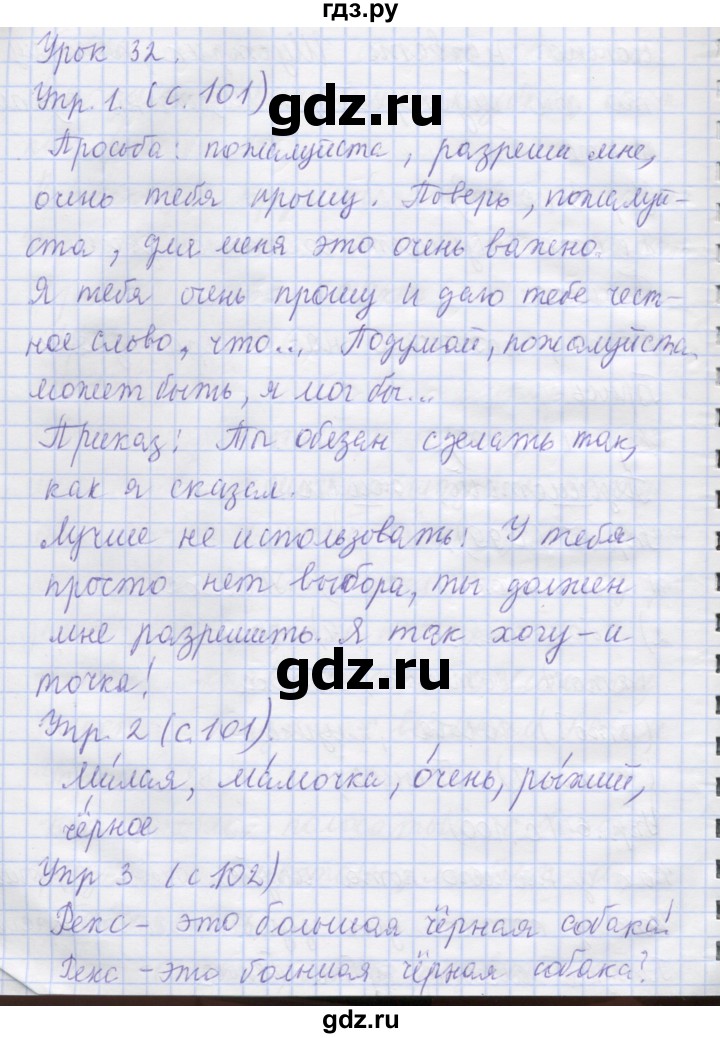 гдз.ру
Урок 32.
Упр. 1. (с. 101)
gdz.ru
Просьба: пожалуйста, разреши мне,
очень тебя прошу. Поверь, пожалуй-
ста, для меня это очень важно.
Я тебя очень прошу и даю тебе чест-
ное слово, что... Подумай, пожалуйста,
может быть, я мог бы...
Приказ: Ты обязан сделать так,
как я сказал.
Лучше не использовать: У тебя
просто нет выбора, ты должен
мне разрешить. Я так хочу - и
gdz.ru
точка!
Упр. 2 (с. 101).
Ми́лая, ма́мочка, о́чень, ры́жий,
чёрное
Упр 3 (с. 102)
Рекс - это большая чёрная собака!
Рекс - это большая чёрная собака?
gdz.ru